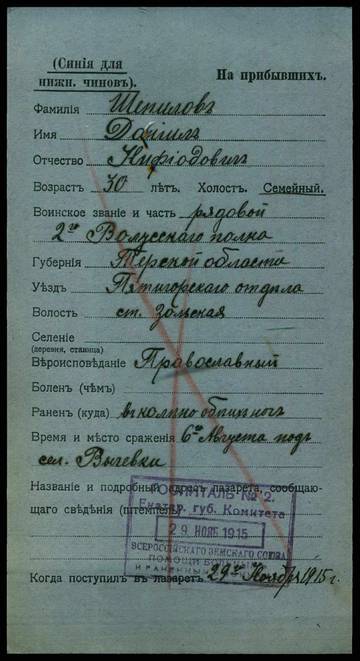 (Синія для
нижн. чиновъ).
На прибывшихъ.
Фамилія Шепиловъ
Имя Даніилъ
Отчество
Возрастъ 30 лѣтъ. Холост. Семейный.
Воинское званіе и часть рядовой
2го полка
Губернія Терской области
Уѣздъ Пятигорскаго отдѣла
Волость ст. Зольская
Селеніе
(деревня, станица)
Вѣроисповѣданіе Православный
Боленъ (чѣмъ)
Раненъ (куда) въ колѣно
Время и мѣсто сраженія 6го Августа подъ
сел.
Названіе и подробный адресъ лазарета, сообщаю-
щаго свѣдѣнія (штемпель)
ГОСПИТАЛЬ № 2.
Екатер. губ. Комитета
29 НОЯБ 1915
ВСЕРОССІЙСКАГО ЗЕМСКАГО СОЮЗА
ПОМОЩИ БОЛЬНЫМЪ
И РАНЕНЫМЪ
Когда поступилъ въ лазаретъ 29го Ноября 1915 г.